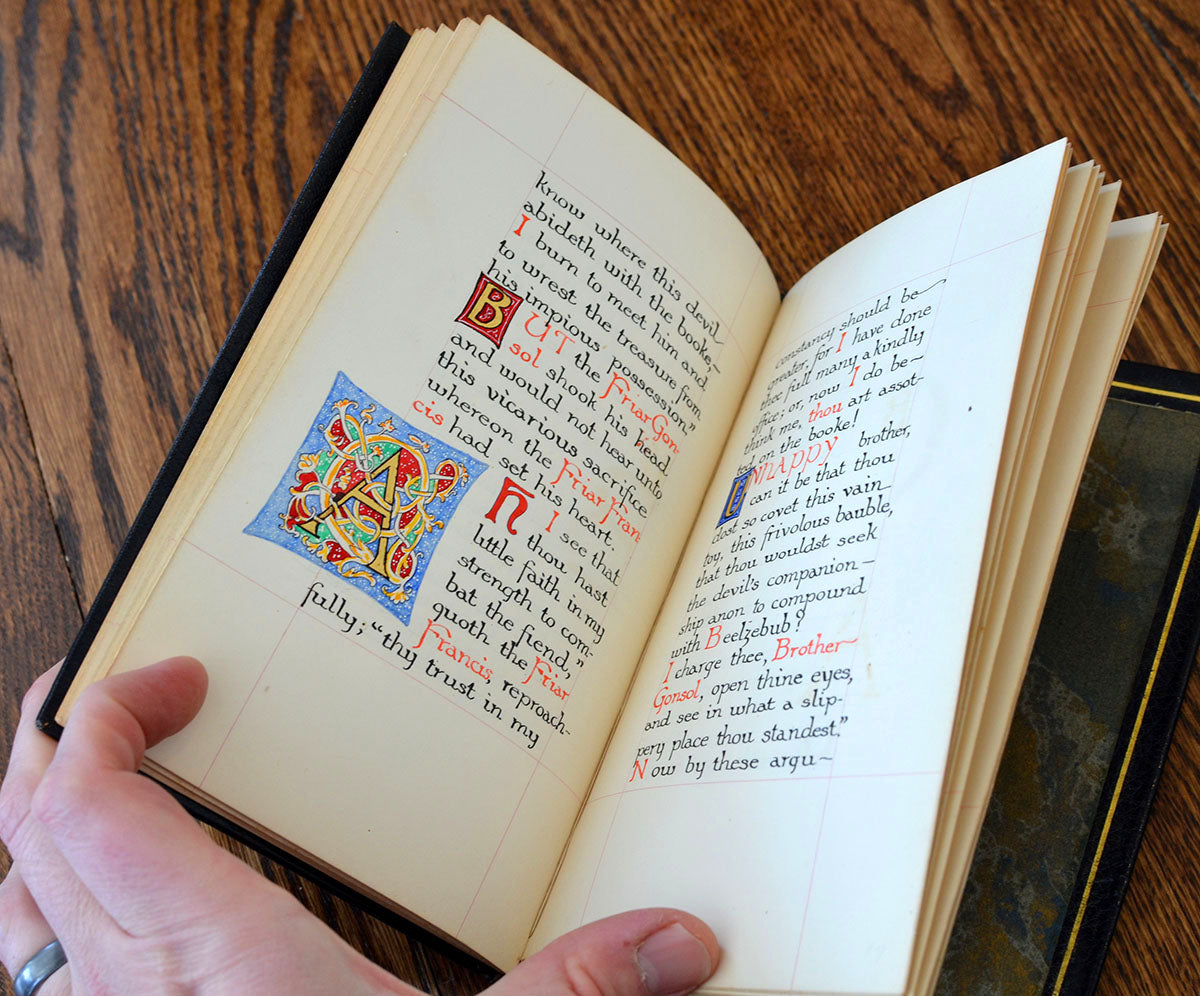 know where this devil
abideth with the booke,~
I burn to meet him and
to wrest the treasure from
his impious possession."
BUT the Friar Gon-
sol shook his head
and would not hear unto
this vicarious sacrifice
whereon the Friar Fran-
cis had set his heart.
Ah I see that
thou hast
little faith in my
strength to com-
bat the fiend,"
quoth the Friar
Francis, reproach-
fully; "thy trust in my
constancy should be~
greater, for I have done
thee full many a kindly
office; or, now I do be~
think me, thou art assot-
ted on the booke!
UNHAPPY brother,
can it be that thou
dost so covet this vain
toy, this frivolous bauble,
that thou wouldst seek
the devil's companion-
ship anon to compound
with Beelzebub?
I charge thee, Brother
Gonsol, open thine eyes,
and see in what a slip-
pery place thou standest."
Now by these argu~